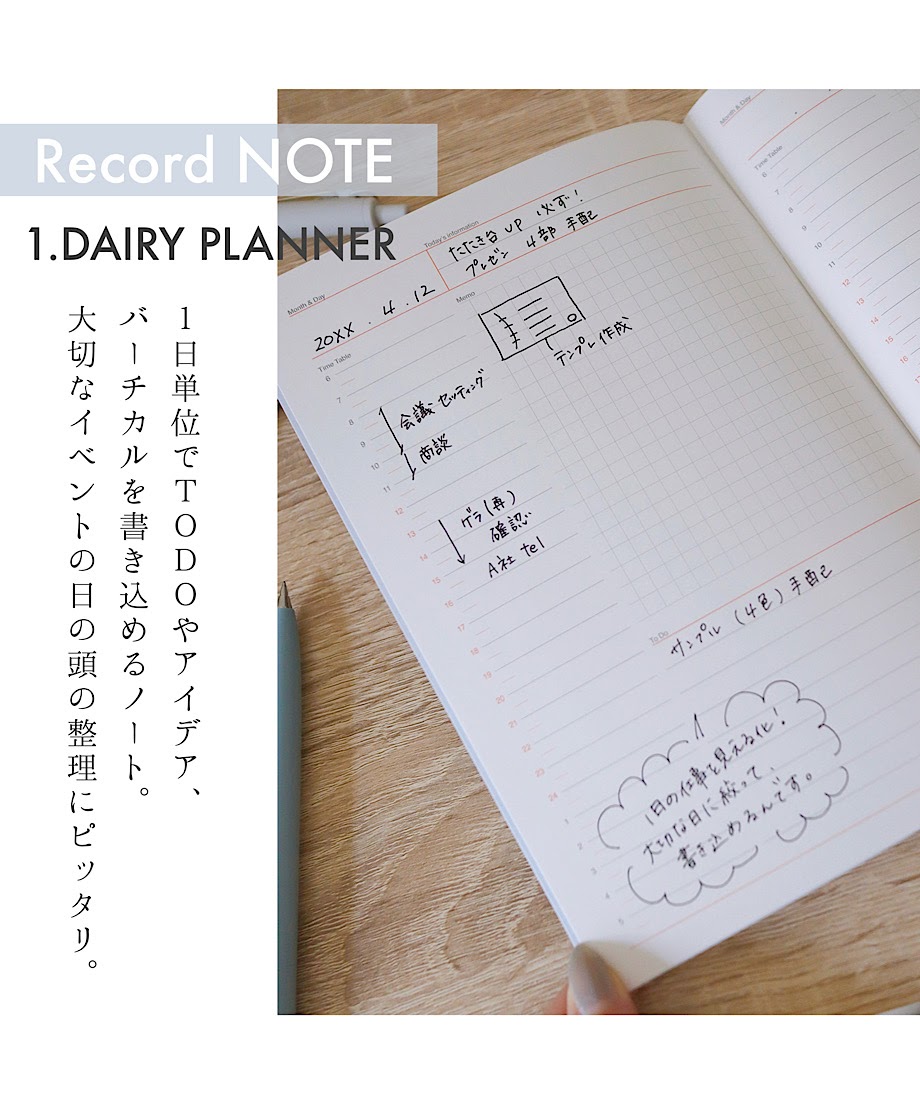 Record NOTE
1.DAIRY PLANNER
1日単位でTODOやアイデア、
バーチカルを書き込めるノート。
大切なイベントの日の頭の整理にピッタリ。
Month & Day
20XX . 4 . 12
Today's information
たたき台 UP 必ず!
プレゼン 4部 手配
Time Table
6
7
8
9
10
11
12
13
14
15
16
17
18
19
20
21
22
23
24
1
2
3
4
5
会議 セッティング
商談
ゲラ(再)
確認
A社 tel
Memo
テンプレ作成
To Do
サンプル (4色) 手配
1日の仕事を見える化!
大切な日に絞って、
書き込めるんです。
Month & Day
Time Table
6
7
8
9
10
11
12
13
14
15
16